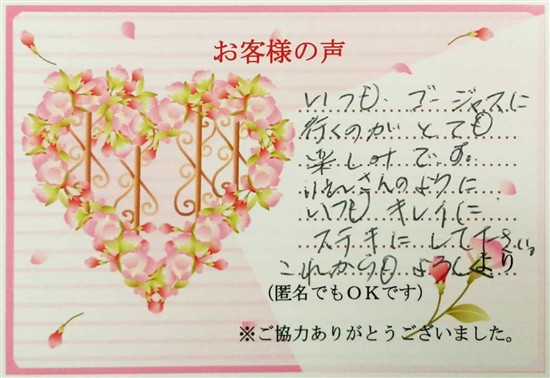 お客様の声
いつも ゴージャスに
行くのがとても
楽しみです。
さんのように
いつも キレイに
ステキに して下さいっ
これからも よろしく
より
(匿名でもOKです)
※ご協力ありがとうございました。